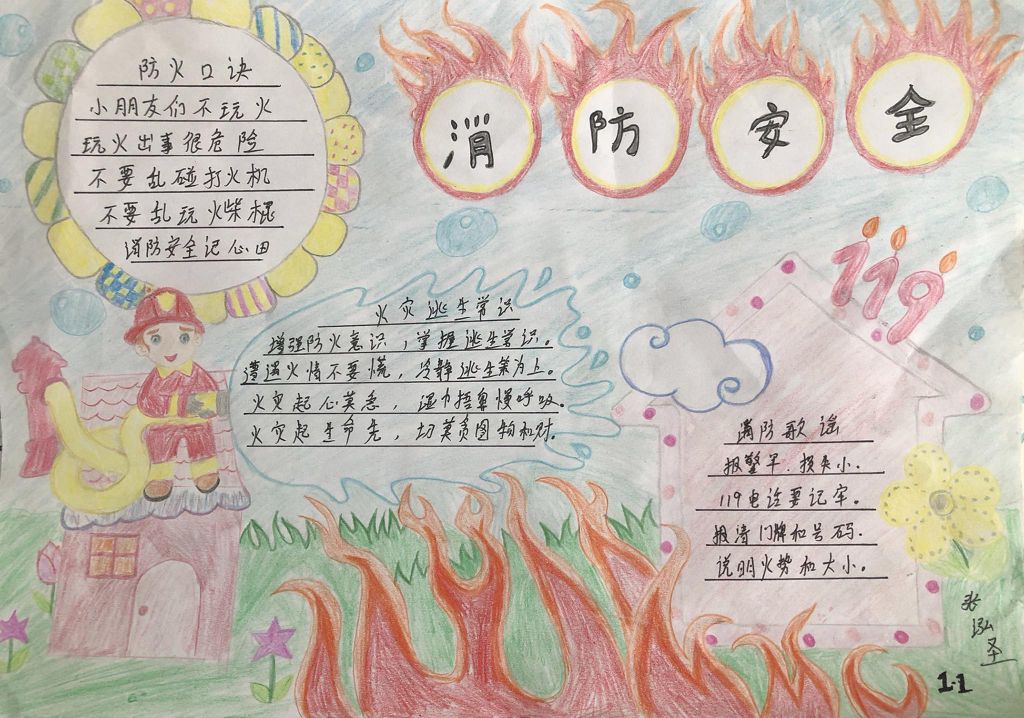 消防安全
防火口诀
小朋友们不玩火
玩火出事很危险
不要乱碰打火机
不要乱玩火柴棍
消防安全记心田
119
火灾逃生常识
增强防火意识，掌握逃生常识。
遭遇火情不要慌，冷静逃生策为上。
火灾起心莫急，湿巾捂鼻慢呼吸。
火灾起生命先，切莫贪图物和财。
消防歌谣
报警早.损失小。
119电话要记牢。
报清门牌和号码.
说明火势和大小。
张泓圣
1.1